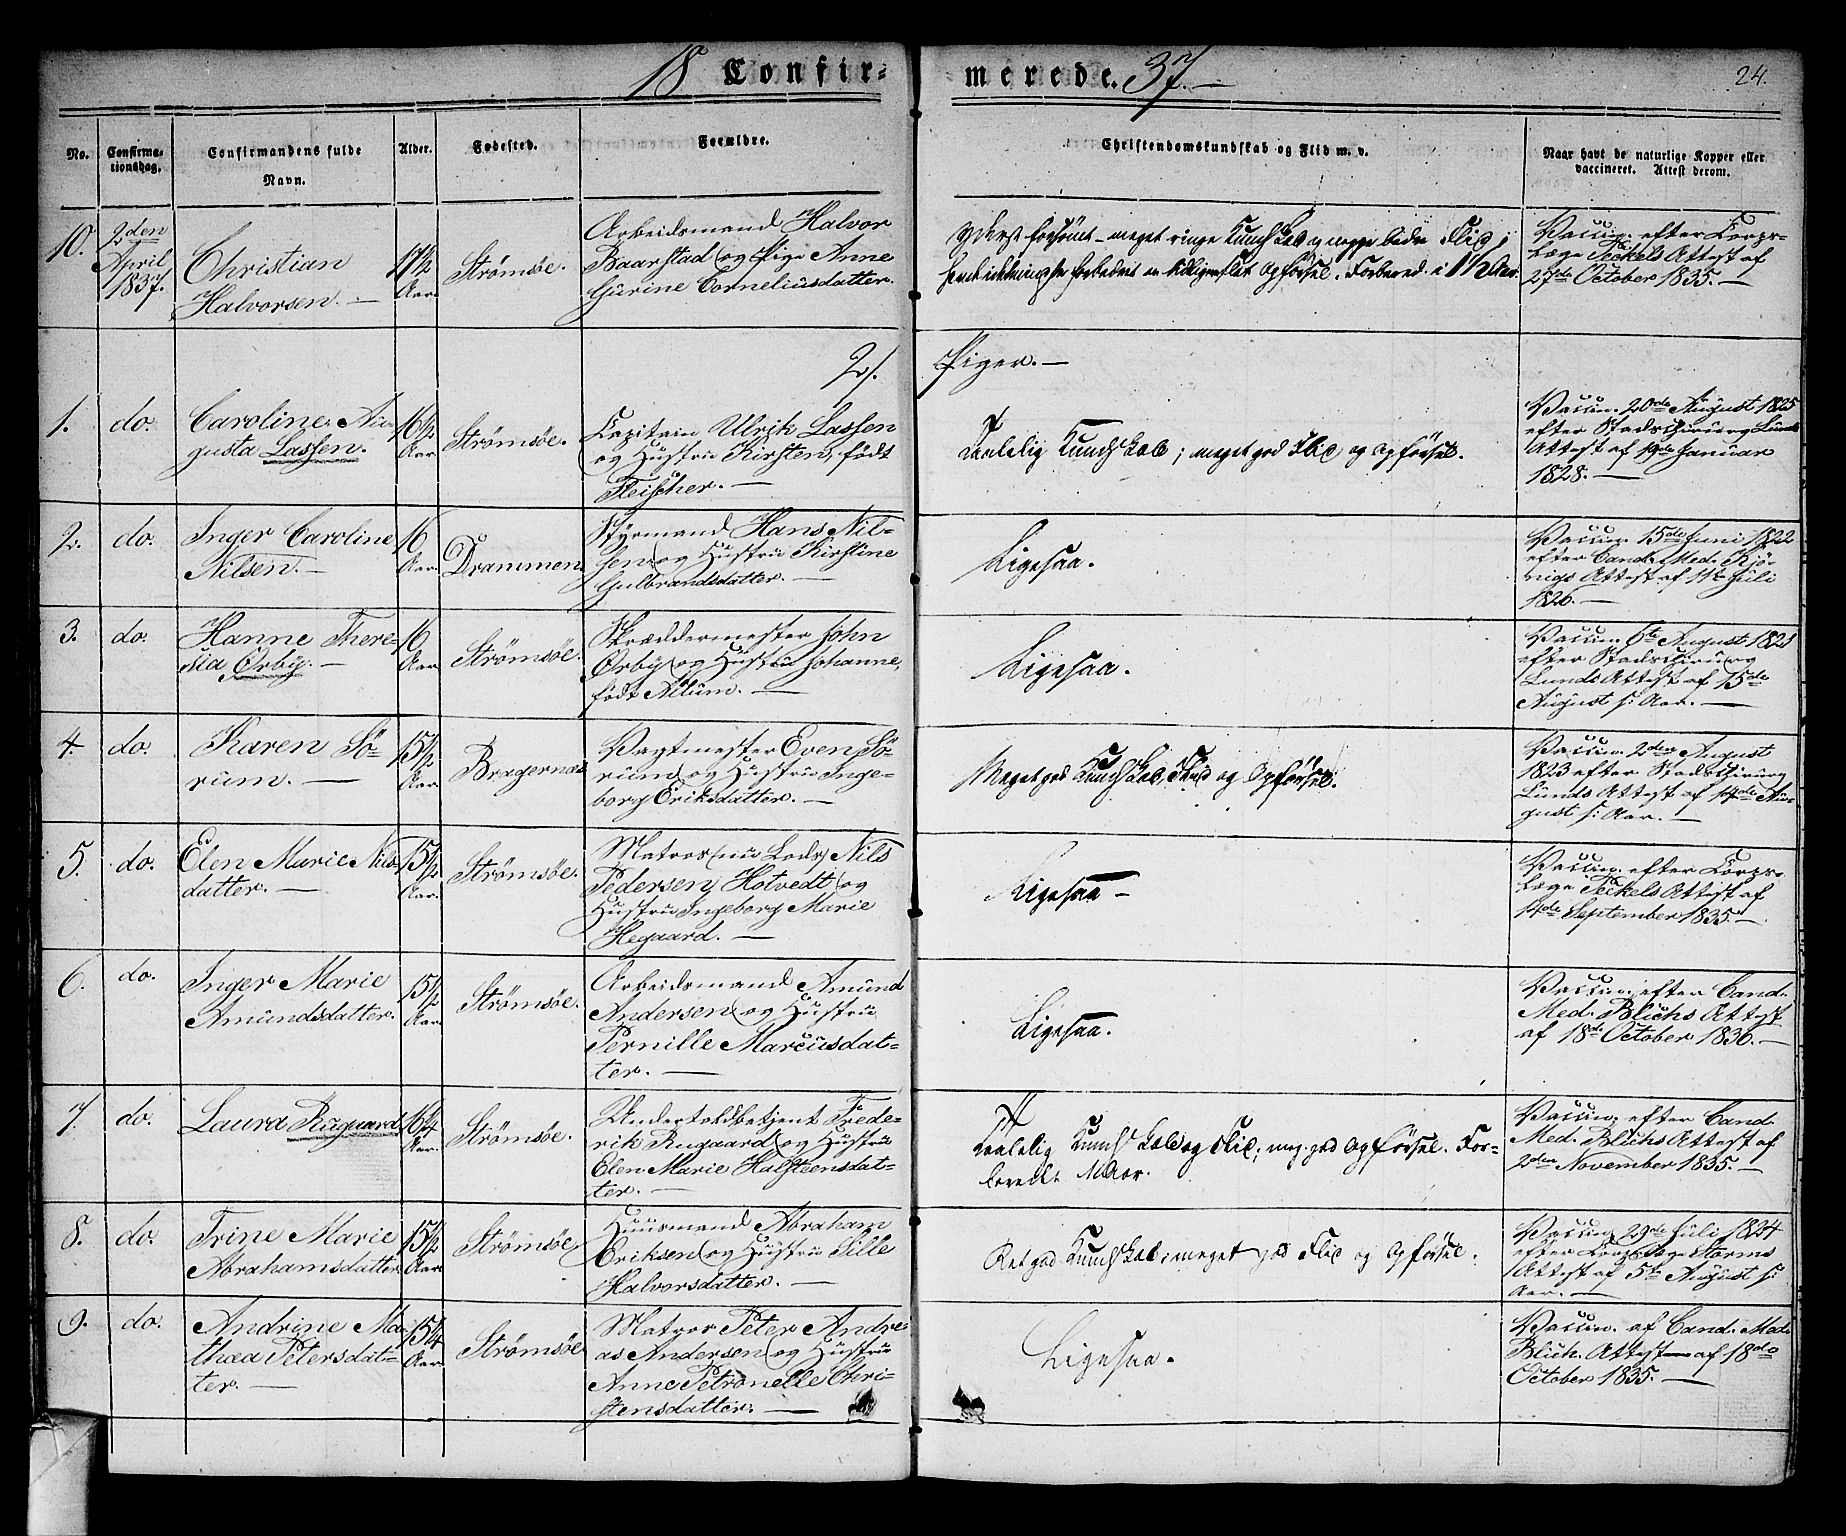 18 Confir-
merede. 37.
24.
No.
Confirma-
tionsdag.
Confirmandens fulde
Navn.
Alder.
Fødested.
Forældre.
Christendomskundskab og Flid m. v.
Naar havt de naturlige Kopper eller
vaccineret. Attest derom.
10.
2den
April
1837.
Christian
Halvorsen.
17½
Aar
Strömsöe.
Arbeidsmand Halvor
Baarstad og Pige Anne
Gurine Corneliusdatter.
Yderst forsömt - meget ringe Kundskab og meget bedre Flid;
Opförsel. Forbered. i 1½ Aar.
Vaccin. efter Corps-
læge Teckels Attest af
27de October 1835.
2/.
Piger.
1.
do.
Caroline Au-
gusta Lassen.
16½
Aar
Strömsöe.
Capitain Ulrik Lassen
og Hustru Kirsten, födt
Fleischer.
Taalelig Kundskab; meget god Flid og Opförsel.
Vaccin. 20de August 1825
efter Stadschirurg Lunds
Attest af 19de Januar
1828.
2.
do.
Inger Caroline
Nilsen.
16
Aar.
Drammen.
Styrmand Hans Nil-
sen og Hustru Kirstine
Gulbrandsdatter.
Ligesaa.
Vaccin. 15de Juni 1822
efter Cand. Med. Kjö-
nigs Attest af 11te Juli
1826.
3.
do.
Hanne There-
sia Örby.
16
Aar.
Strömsöe.
Skræddermester John
Örby og Hustru Johanne,
födt Alum.
Ligesaa.
Vaccin. 6te August 1821
efter Stadschirurg
Lunds Attest af 15de
August s: Aar.
4.
do.
Karen Sö-
rum.
15½
Aar.
Bragernæs
Vagtmester Even Sö-
rum og Hustru Inge-
borg Eriksdatter.
Meget god Kundskab, Flid og Opförsel.
Vaccin. 2den August
1823 efter Stadschirurg
Lunds Attest af 14de Au-
gust s: Aar.
5.
do.
Elen Marie Nils-
datter.
15½
Aar.
Strömsöe.
Matros (nu Lods) Nils
Pedersen Hotvedt og
Hustru Ingeborg Marie
Hegaard.
Ligesaa
Vaccin. efter Corps-
læge Teckels Attest af
14de September 1835.
6.
do.
Inger Marie
Amundsdatter.
15½
Aar.
Strömsöe.
Arbeidsmand Amund
Andersen og Hustru
Pernille Marcusdat-
ter.
Ligesaa.
Vaccin. efter Cand.
Med. Blichs Attest
af 18de October 1836.
7.
do.
Laura Rugaard
16¼
Aar.
Strömsöe.
Undertoldbetjent Frede-
rik Rugaard og Hustru
Elen Marie Halsteensdat-
ter.
Taalelig Kundskab og Flid; meg. god Opförsel. For-
beredt Aar.
Vaccin. efter Cand.
Med. Blichs Attest af
2den November 1835.
8.
do.
Trine Marie
Abrahamsdatter
15½
Aar.
Strömsöe
Huusmand Abraham
Eriksen og Hustru Sille
Halvorsdatter.
Ret god Kundskab; meget god Flid og Opförsel.
Vaccin. 29de Juli 1824
efter Corpslæge Storms
Attest af 5te August s:
Aar.
9.
do.
Andrine Ma-
thea Petersdat-
ter.
15¼
Aar.
Strömsöe
Matros Peter Andre-
as Andersen og Hustru
Anne Petronelle Chri-
stensdatter.
Ligesaa.
Vaccin. af Cand. Med.
Blich. Attest af 18de
October 1835.